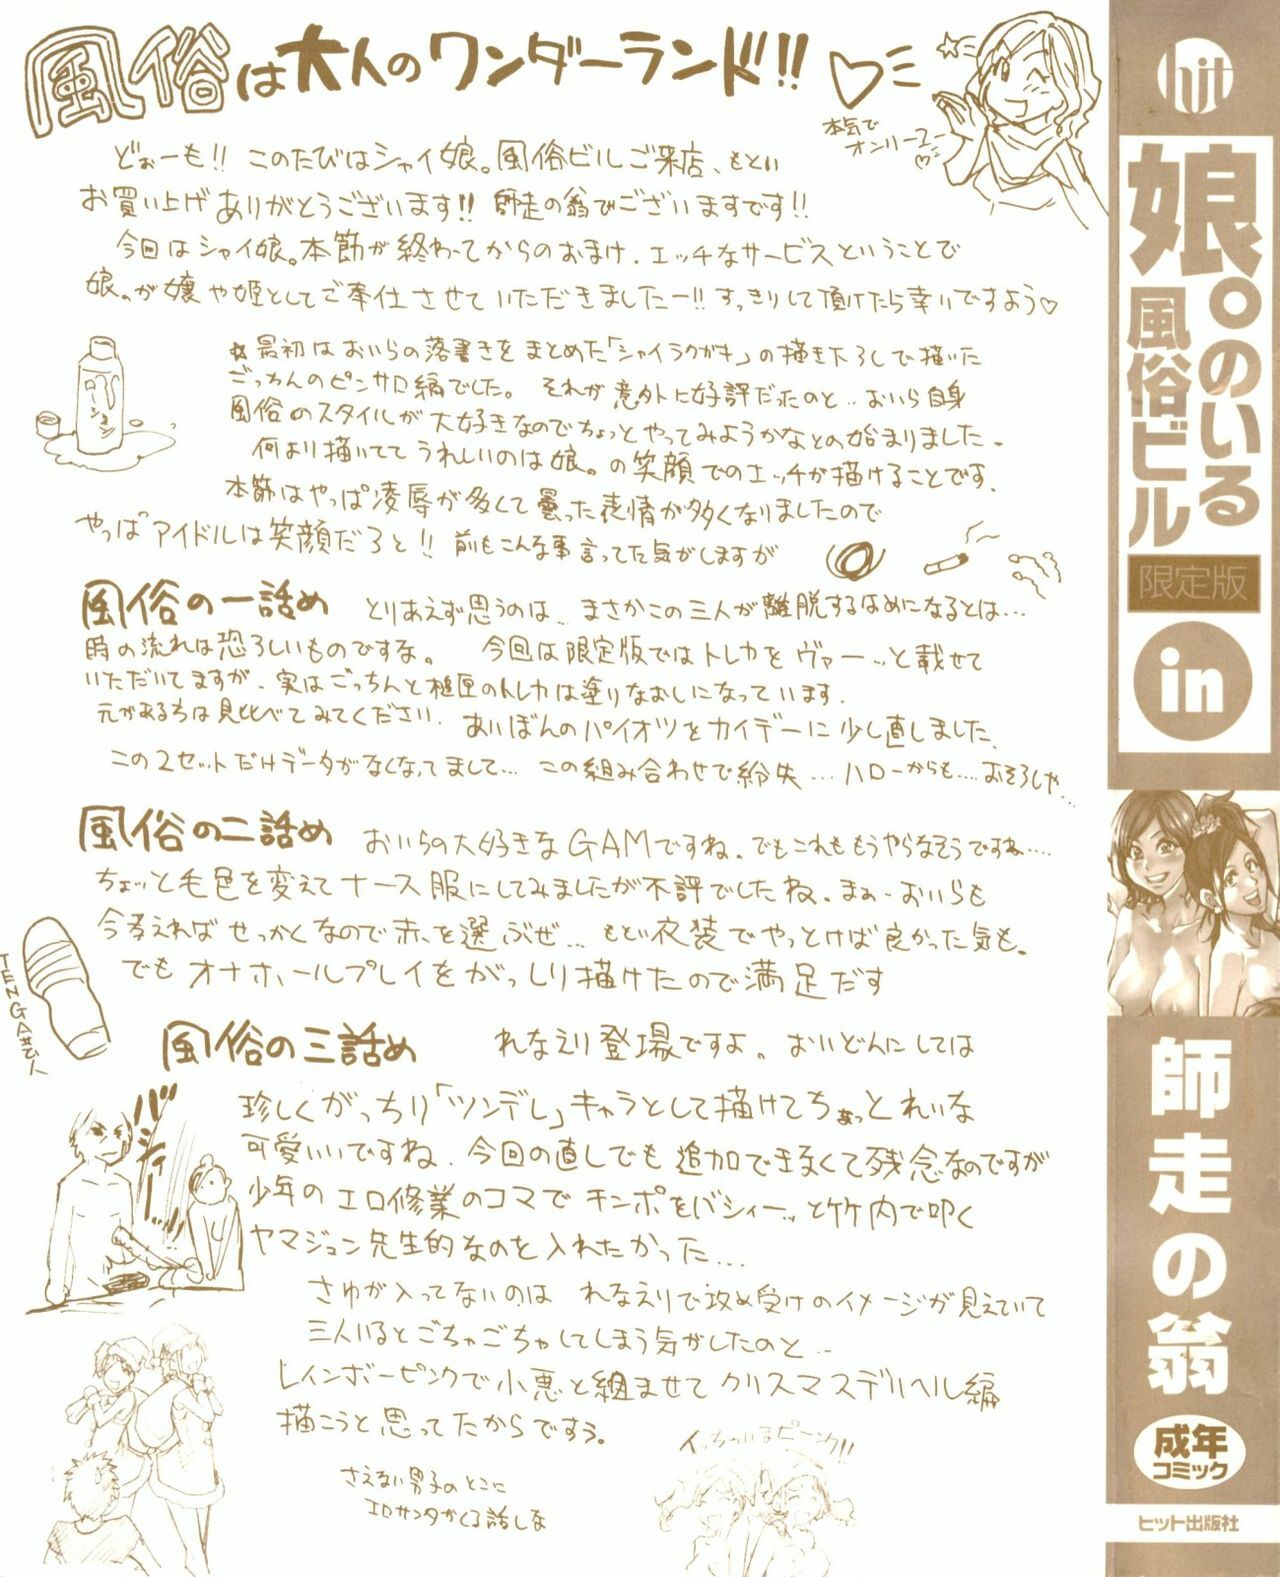 風俗は大人のワンダーランド!!
本気で
オンリーユー
どぉーも!! このたびはシャイ娘。風俗ビルご来店、もとい
お買い上げありがとうございます!! 師走の翁でございますです!!
今回はシャイ娘。本節が終わってからのおまけ、エッチなサービスということで
娘。が嬢や姫としてご奉仕させていただきましたー!! すっきりして頂けたら幸いですよう♡
ローション
★最初はおいらの落書きをまとめた「シャイラクガキ」の描き下ろしで描いた
ごっちんのピンサロ編でした。それが意外に好評だったのと‥おいら自身
風俗のスタイルが大好きなのでちょっとやってみようかなとの始まりました。
何より描いててうれしいのは娘。の笑顔でのエッチが描けることです。
本節はやっぱ凌辱が多くて曇った表情が多くなりましたので
やっぱアイドルは笑顔だろと!! 前もこんな事言ってた気がしますが
風俗の一話め とりあえず思うのは、まさかこの三人が離脱するはめになるとは…
時の流れは恐ろしいものですな。 今回は限定版ではトレカをヴァーッと載せて
いただいてますが、実はごっちんと のトレカは塗りなおしになっています。
元がある方は見比べてみてください。あいぼんのパイオツをカイデーに少し直しました。
この2セットだけデータがなくなってまして… この組み合わせで紛失…ハローからも…‥おそろしや…
風俗の二話め おいらの大好きなGAMですね。でもこれももうやらなそうですね…‥
ちょっと毛色を変えてナース服にしてみましたが不評でしたね。まぁ‥おいらも
今考えればせっかくなので赤を選ぶぜ… もとい衣装でやっとけば良かった気も。
でもオナホールプレイをがっしり描けたので満足だす
TENGA
風俗の三話め れなえり登場ですよ。おいどんにしては
珍しくがっちり「ツンデレ」キャラとして描けてちょっとれいな
可愛いいですね。今回の直しでも追加できなくて残念なのですが
少年のエロ修業のコマでチンポをバシィーッと竹内で叩く
ヤマジュン先生的なのを入れたかった…
バシィーッ
さゆが入ってないのは れなえりで攻め受けのイメージが見えていて
三人いるとごちゃごちゃしてしまう気がしたのと‥
レインボーピンクで小悪と組ませてクリスマスデリヘル編
描こうと思ってたからですう。
さえない男子のとこに
エロサンタがくる話しな
いっちょいまピーンク!!
hit
娘。のいる風俗ビル
限定版
in
師走の翁
成年
コミック
ヒット出版社